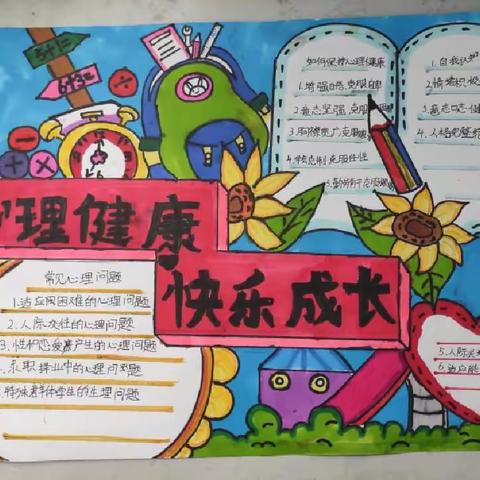 5+1=
6+3=
理健康
快乐成长
如何保持心理健康
1.增强自信,克服自卑
2.意志坚强,克服
3.胸襟宽广克服
4.学会克制克服任性
1.自我认知
2.情绪积极
3.意志品
4.人格完整
常见心理问题
1.适应困难的心理问题
2.人际交往的心理问题
3.性和恋爱产生的心理问题
4.求职择业中的心理问题
5.特殊群体学生的心理问题
5.人际关
6.适应能